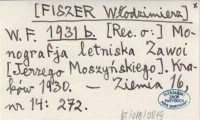 [FISZER Włodzimierz]
W. F. 1931 b. [Rec. o:] Mo-
nografja letniska Zawoi
[Jerzego Moszyńskiego]. Kra-
ków 1930. — Ziemia 16,
nr 14: 272.